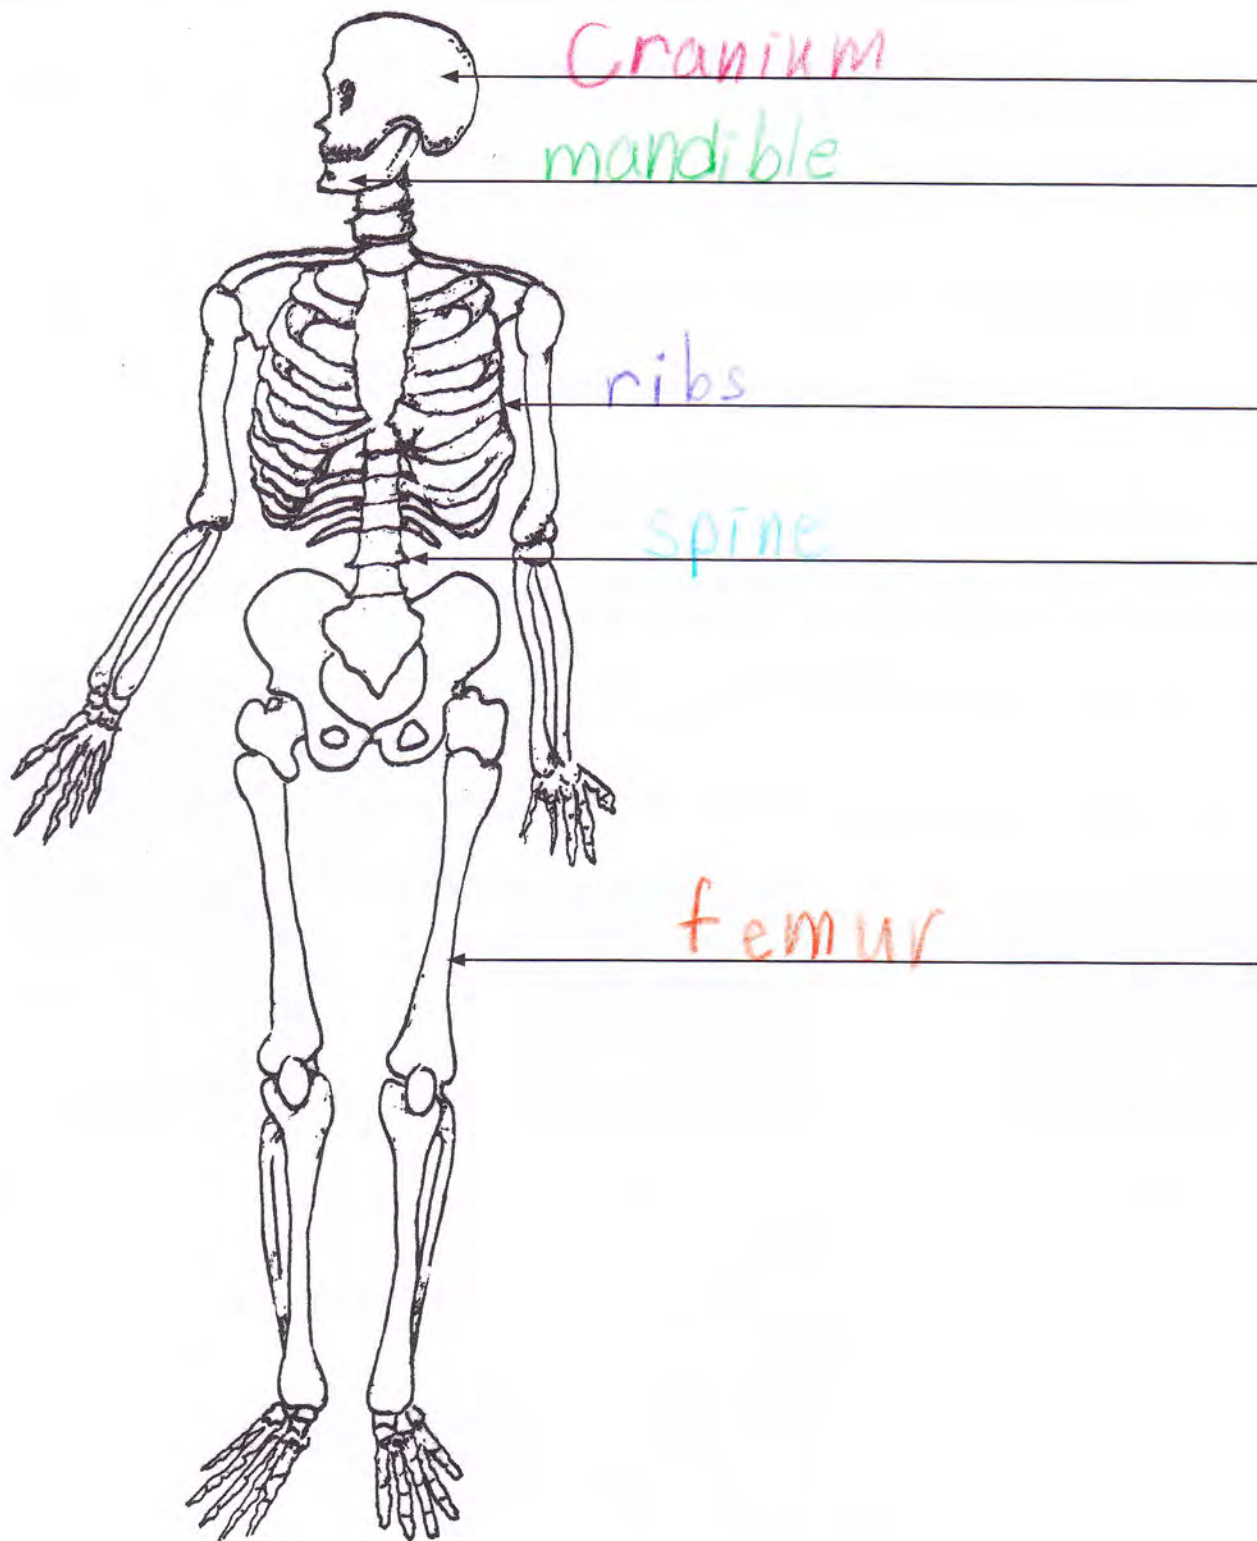 Cranium
mandible
ribs
spine
femur